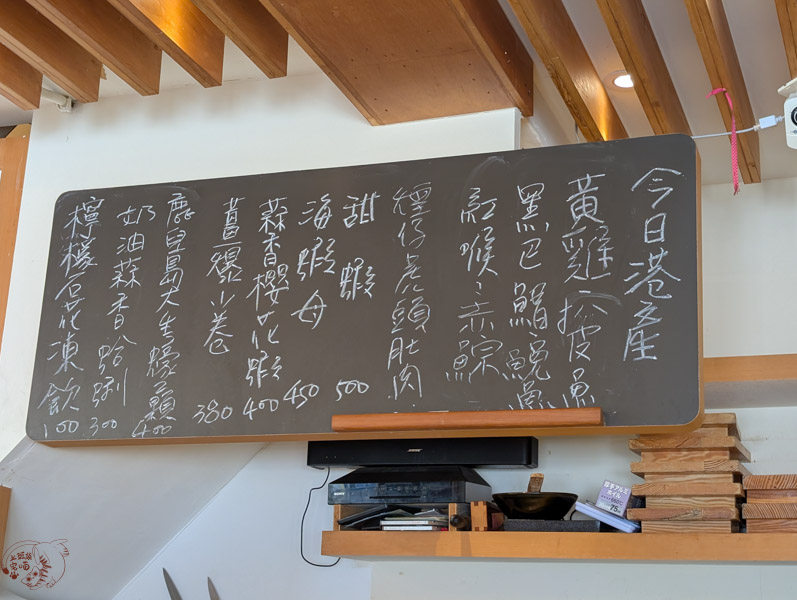 今日港產
黃雞、披魚
黑巴鰡鮸魚
紅喉、赤鯮
煙仔虎頭肚肉
甜蝦 500
海蝦母 450
蒜香櫻花蝦 400
薑爆小卷 380
鹿兒島大生蠔 400
奶油蒜香蛤蜊 300
檸檬石花凍飲 100
BOSE
SONY